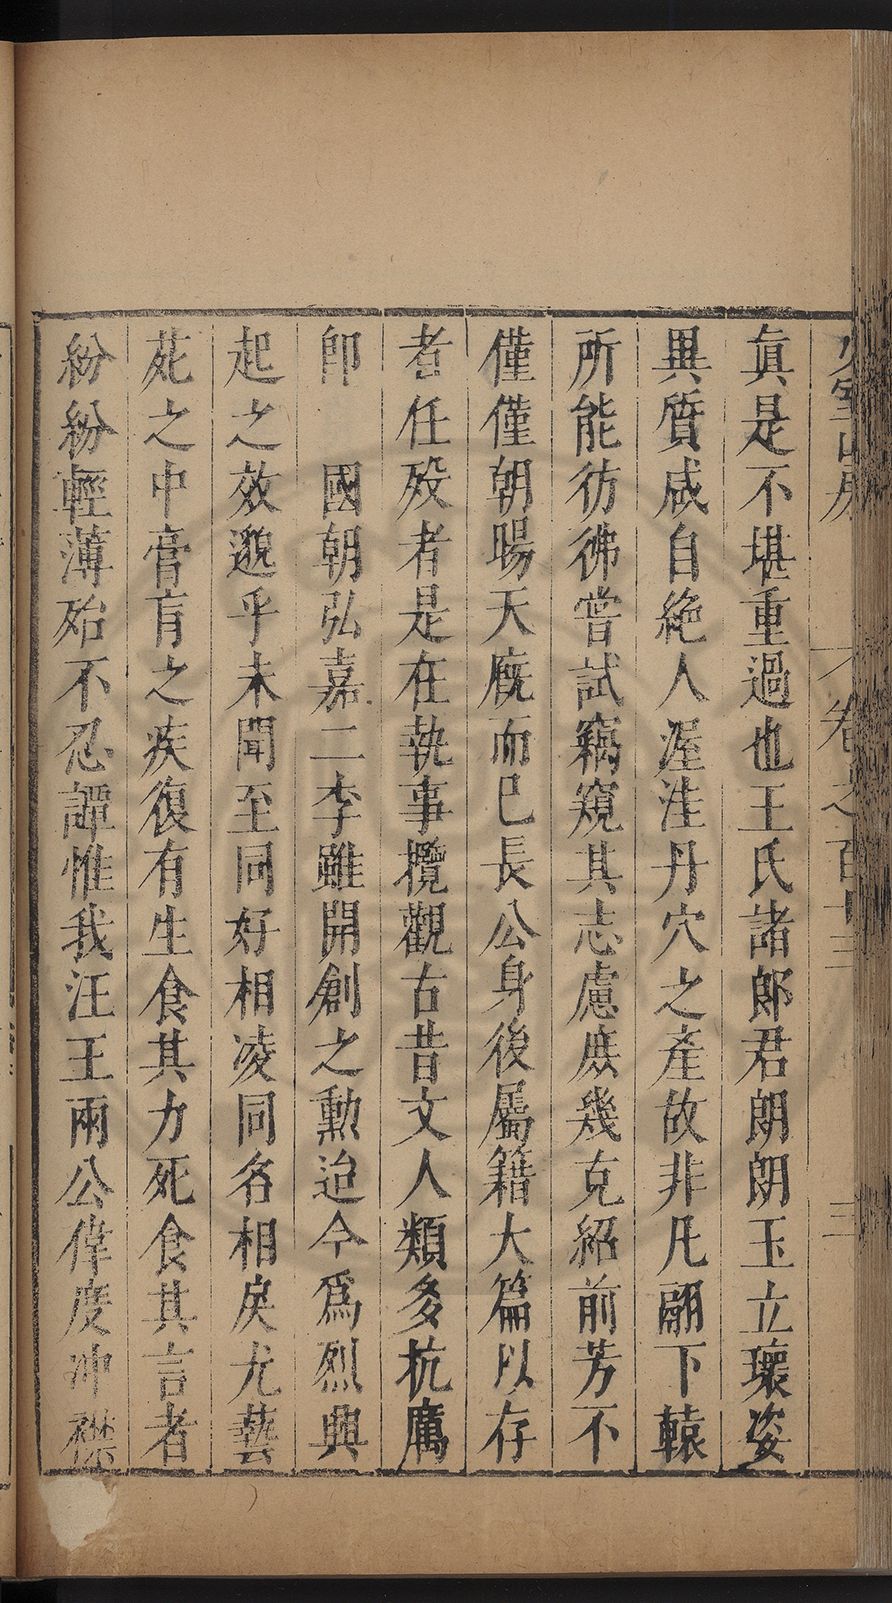 少室山房
卷之百十三
三
真是不堪重過也王氏諸郎君朗朗玉立瓌姿
異質咸自絶人渥洼丹穴之產故非凡翮下轅
所能彷彿嘗試竊窺其志慮庶幾克紹前芳不
僅僅朝暘天廐而巳長公身後屬籍大篇以存
者任殁者是在執事攬觀古昔文人類多抗厲
卽　國朝弘嘉二李雖開創之勳迨今爲烈興
起之效邈乎未聞至同好相凌同名相戾尤藝
苑之中膏肓之疾復有生食其力死食其言者
紛紛輕薄殆不忍譚惟我汪王兩公偉度冲襟